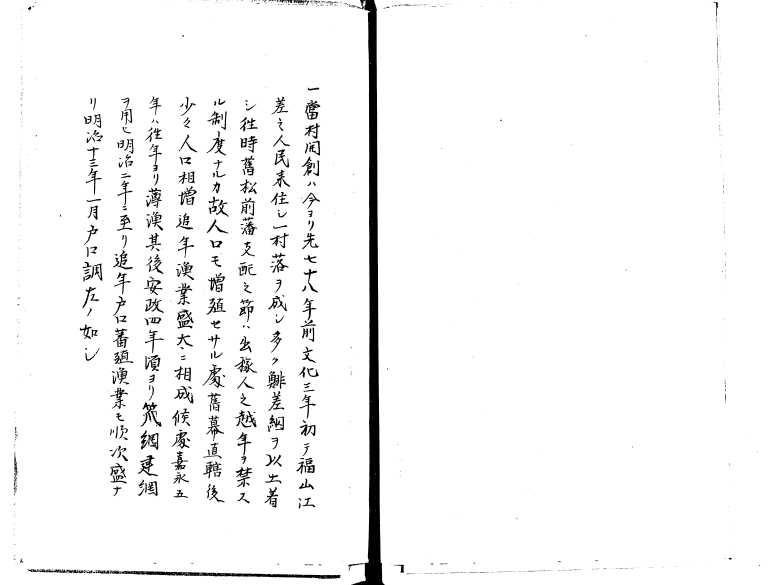 一當村開創ハ今ヨリ先七十八年前文化三年初テ福山江
差之人民来住シ一村落ヲ成シ多ク鯡差網ヲ以土着
シ往時舊松前藩支配之節ハ出稼人之越年ヲ禁ス
ル制度ナルカ故人口モ増殖セサル處舊幕直轄後
少々人口相増追年漁業盛大ニ相成候處嘉永五
年ハ往年ヨリ薄漁其後安政四年頃ヨリ笊網建網
ヲ用ヒ明治二年ニ至リ追年戸口蕃殖漁業モ順次盛ナ
リ明治十三年一月戸口調左ノ如シ